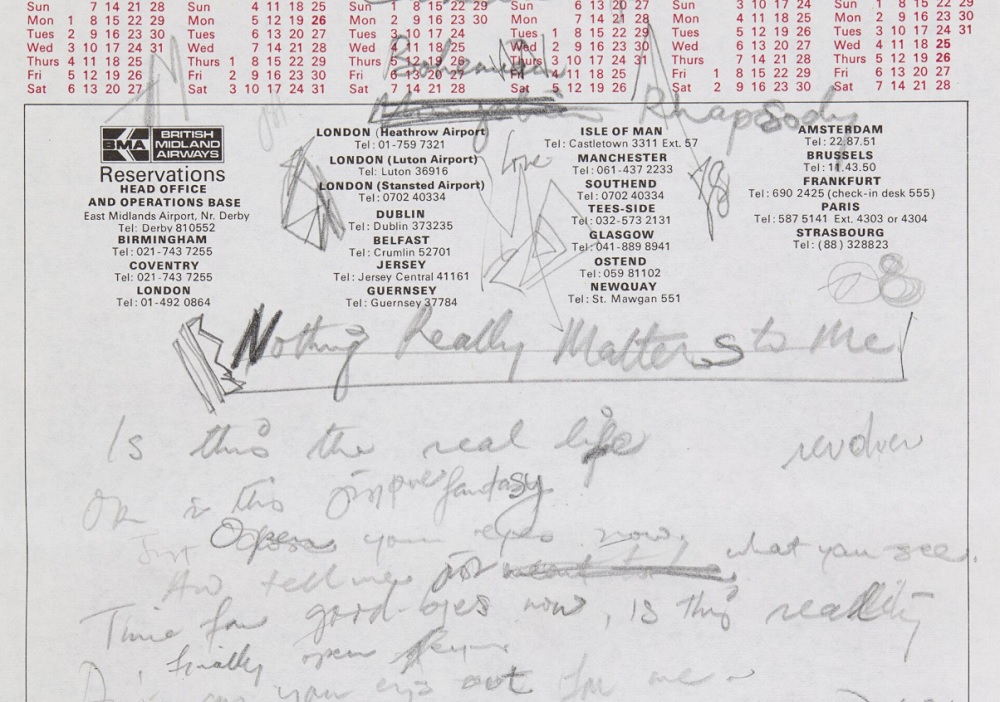 Sun 7 14 21 28
Mon 1 8 15 22 29
Tues 2 9 16 23 30
Wed 3 10 17 24 31
Thurs 4 11 18 25
Fri 5 12 19 26
Sat 6 13 20 27
Sun 4 11 18 25
Mon 5 12 19 26
Tues 6 13 20 27
Wed 7 14 21 28
Thurs 1 8 15 22 29
Fri 2 9 16 23 30
Sat 3 10 17 24 31
Sun 1 8 15 22 29
Mon 2 9 16 23 30
Tues 3 10 17 24
Wed 4 11 18 25
Thurs 5 12 19 26
Fri 6 13 20 27
Sat
Sun 6 13 20 27
Mon 7 14 21 28
Tues 1 8 15 22 29
Wed 2 9 16 23 30
Thurs 3 10 17 24 31
Fri 4 11 18 25
Sat 5 12 19 26
Sun 3 10 17 24
Mon 4 11 18 25
Tues 5 12 19 26
Wed 6 13 20 27
Thurs 7 14 21 28
Fri 1 8 15 22 29
Sat 2 9 16 23 30
Sun 1 8 15 22 29
Mon 2 9 16 23 30
Tues 3 10 17 24 31
Wed 4 11 18 25
Thurs 5 12 19 26
Fri 6 13 20 27
Sat 7 14 21 28
Bohemian
Mongolian
Rhapsody
BMA BRITISH
MIDLAND
AIRWAYS
Reservations
HEAD OFFICE
AND OPERATIONS BASE
East Midlands Airport, Nr. Derby
Tel: Derby 810552
BIRMINGHAM
Tel: 021-743 7255
COVENTRY
Tel: 021-743 7255
LONDON
Tel: 01-492 0864
LONDON (Heathrow Airport)
Tel: 01-759 7321
LONDON (Luton Airport)
Tel: Luton 36916
LONDON (Stansted Airport)
Tel: 0702 40334
DUBLIN
Tel: Dublin 373235
BELFAST
Tel: Crumlin 52701
JERSEY
Tel: Jersey Central 41161
GUERNSEY
Tel: Guernsey 37784
Love
ISLE OF MAN
Tel: Castletown 3311 Ext. 57
MANCHESTER
Tel: 061-437 2233
SOUTHEND
Tel: 0702 40334
TEES-SIDE
Tel: 032-573 2131
GLASGOW
Tel: 041-889 8941
OSTEND
Tel: 059 81102
NEWQUAY
Tel: St. Mawgan 551
AMSTERDAM
Tel: 22.87.51
BRUSSELS
Tel: 11.43.50
FRANKFURT
Tel: 690 2425 (check-in desk 555)
PARIS
Tel: 587 5141 Ext. 4303 or 4304
STRASBOURG
Tel: (88) 328823
Nothing Really Matters to Me
Is this the real life
revolver
Or is this just pure fantasy
Just Open your eyes now, what you see.
And tell me
Time for good-byes now, is this reality
finally open
you eyes out for me